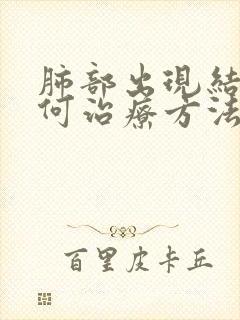 肺部出現結
何治療方法
百里皮卡丘